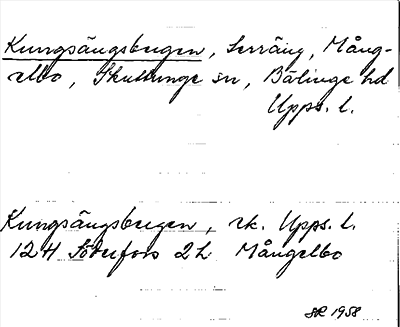 Kungsängsbergen, terräng, Mång-
elbo, Skuttunge sn, Bälinge hd
Upps. l.
Kungsängsbergen, ek. Upps. l.
12H Söderfors 2h Mångelbo
SR 1958